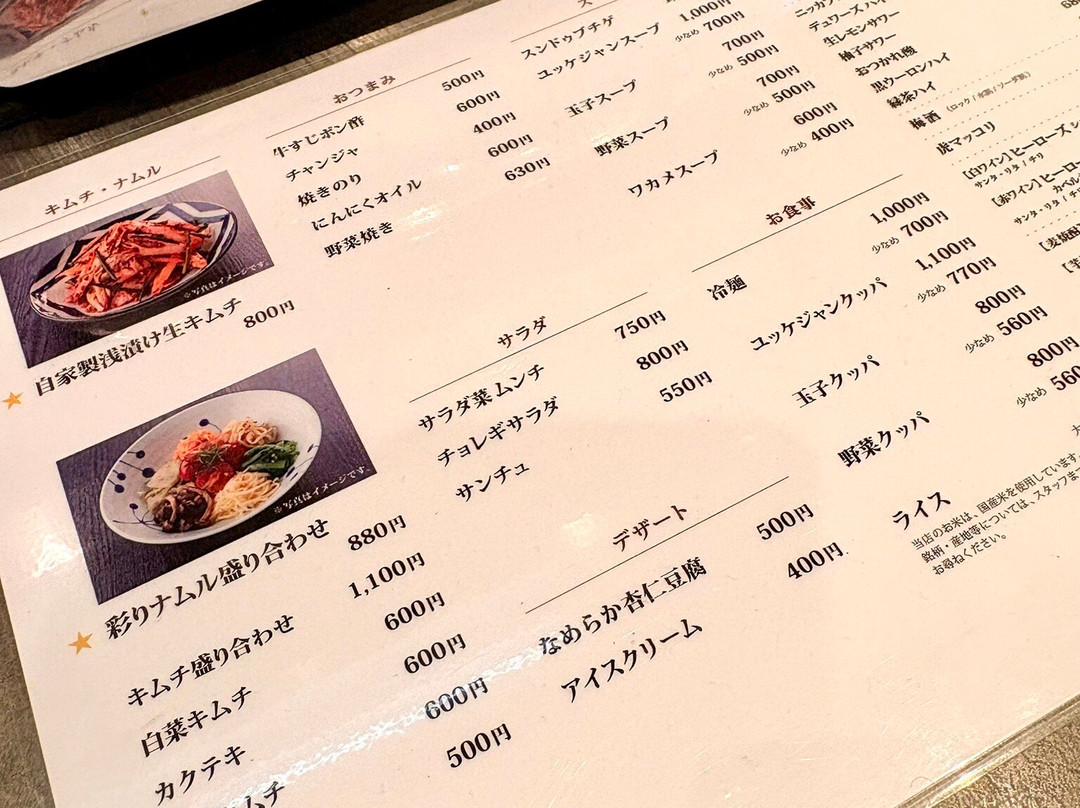 キムチ・ナムル
※写真はイメージです。
★ 自家製浅漬け生キムチ 800円
※写真はイメージです。
★ 彩りナムル盛り合わせ 880円
キムチ盛り合わせ 1,100円
白菜キムチ 600円
カクテキ 600円
600円
500円
おつまみ
牛すじポン酢 500円
チャンジャ 600円
焼きのり 400円
にんにくオイル 600円
野菜焼き 630円
サラダ
サラダ菜 ムンチ 750円
チョレギサラダ 800円
サンチュ 550円
デザート
なめらか杏仁豆腐 500円
アイスクリーム 400円
ス
スンドゥブチゲ
ユッケジャンスープ 1,000円
少なめ 700円
玉子スープ 700円
少なめ 500円
野菜スープ 700円
少なめ 500円
ワカメスープ 600円
少なめ 400円
お食事
冷麺 1,000円
少なめ 700円
ユッケジャンクッパ 1,100円
少なめ 770円
玉子クッパ 800円
少なめ 560円
野菜クッパ 800円
少なめ 560
ライス
当店のお米は、国産米を使用しています。
銘柄・産地等については、スタッフま
お尋ねください。
デュワーズハ
生レモンサワー
柚子サワー
おつかれ酸
黒ウーロンハイ
緑茶ハイ
梅酒 (ロック / 水割 / ソーダ割)
虎マッコリ
[白ワイン] ヒーローズ
サンタ・リタ / チリ
[赤ワイン] ヒーロー
カベル
サンタ・リタ / チ
[麦焼酎